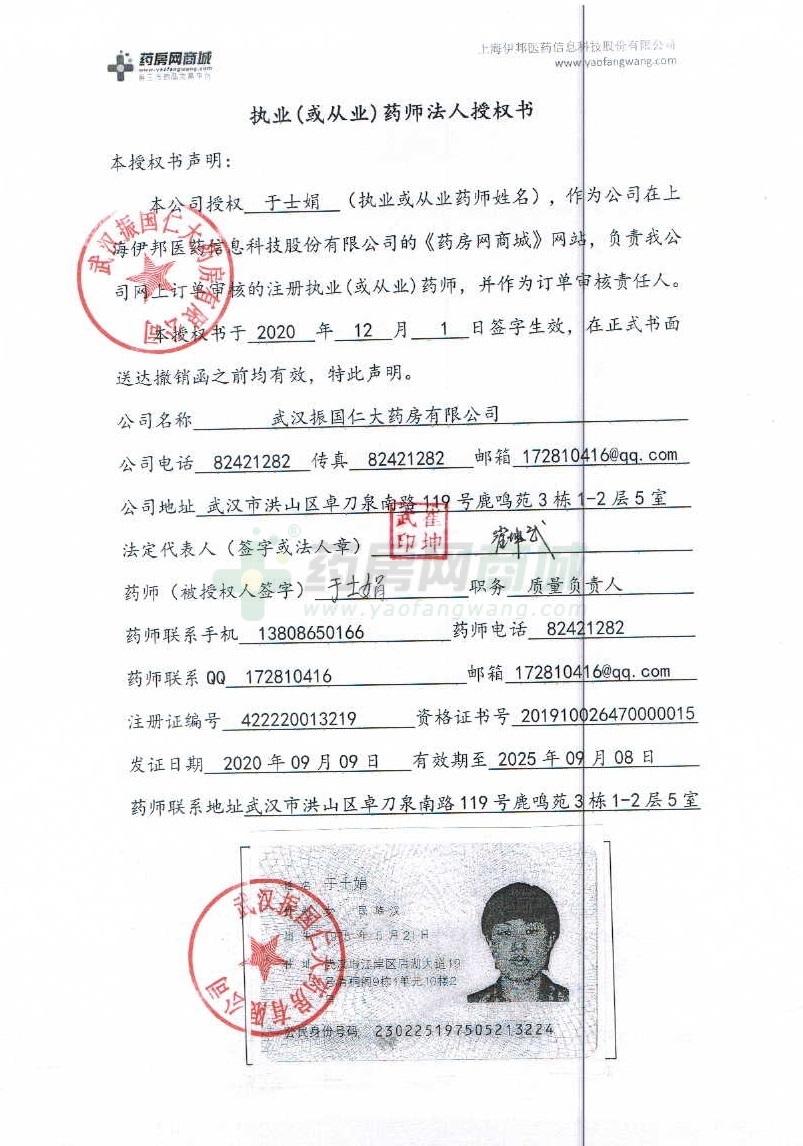 药房网商城
上海伊邦医药信息科技股份有限公司
www.yaofangwang.com
执业(或从业)药师法人授权书
本授权书声明：
本公司授权 于士娟 （执业或从业药师姓名），作为公司在上
海伊邦医药信息科技股份有限公司的《药房网商城》网站，负责我公
司网上订单审核的注册执业(或从业)药师，并作为订单审核责任人。
本授权书于 2020 年 12 月 1 日签字生效，在正式书面
送达撤销函之前均有效，特此声明。
武汉振国仁大药房有限公司
公司名称 武汉振国仁大药房有限公司
公司电话 82421282 传真 82421282 邮箱 172810416@qq.com
公司地址 武汉市洪山区卓刀泉南路119号鹿鸣苑3栋1-2层5室
法定代表人（签字或法人章） 崔坤武印 崔坤武
药房网商城
www.yaofangwang.com
药师（被授权人签字） 于士娟 职务 质量负责人
药师联系手机 13808650166 药师电话 82421282
药师联系QQ 172810416 邮箱 172810416@qq.com
注册证编号 422220013219 资格证书号 201910026470000015
发证日期 2020年09月09日 有效期至 2025年09月08日
药师联系地址武汉市洪山区卓刀泉南路119号鹿鸣苑3栋1-2层5室
姓名 于士娟
女 民族汉
5月21日
武汉市江岸区后湖大道19
9栋1单元10楼2
号
公民身份号码 230225197505213224
武汉振国仁大药房有限公司